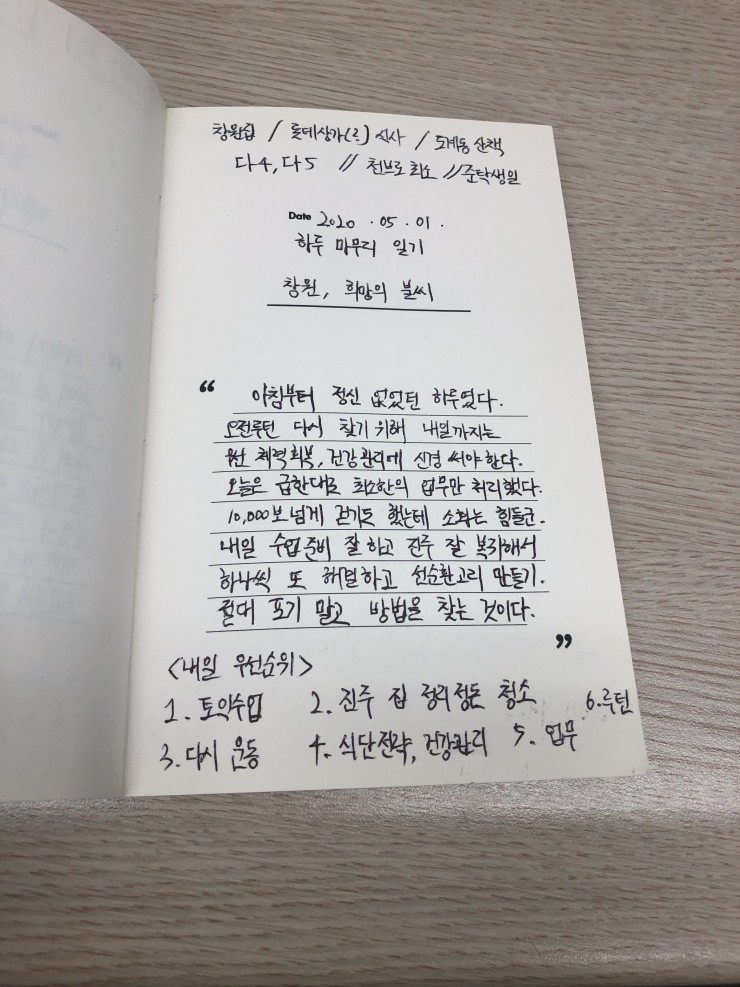 창원집 / 롯데상가(2) 식사 / 도계동 산책
다4, 다5 // 천브로 최소 // 준탁생일
Date 2020 . 05 . 01 .
하루 마무리 일기
창원, 희망의 불씨
“ 아침부터 정신 없었던 하루였다.
오전루틴 다시 찾기 위해 내일까지는
우선 체력회복, 건강관리에 신경 써야 한다.
오늘은 급한대로 최소한의 업무만 처리했다.
10,000보 넘게 걷기도 했는데 소화는 힘들군.
내일 수업준비 잘 하고 진주 잘 복귀해서
하나씩 또 해결하고 선순환고리 만들기.
절대 포기 말고 방법을 찾는 것이다.
”
<내일 우선순위>
1. 토익수업 2. 진주 집 정리정돈 청소 6. 루틴
3. 다시 운동 4. 식단전략, 건강관리 5. 업무